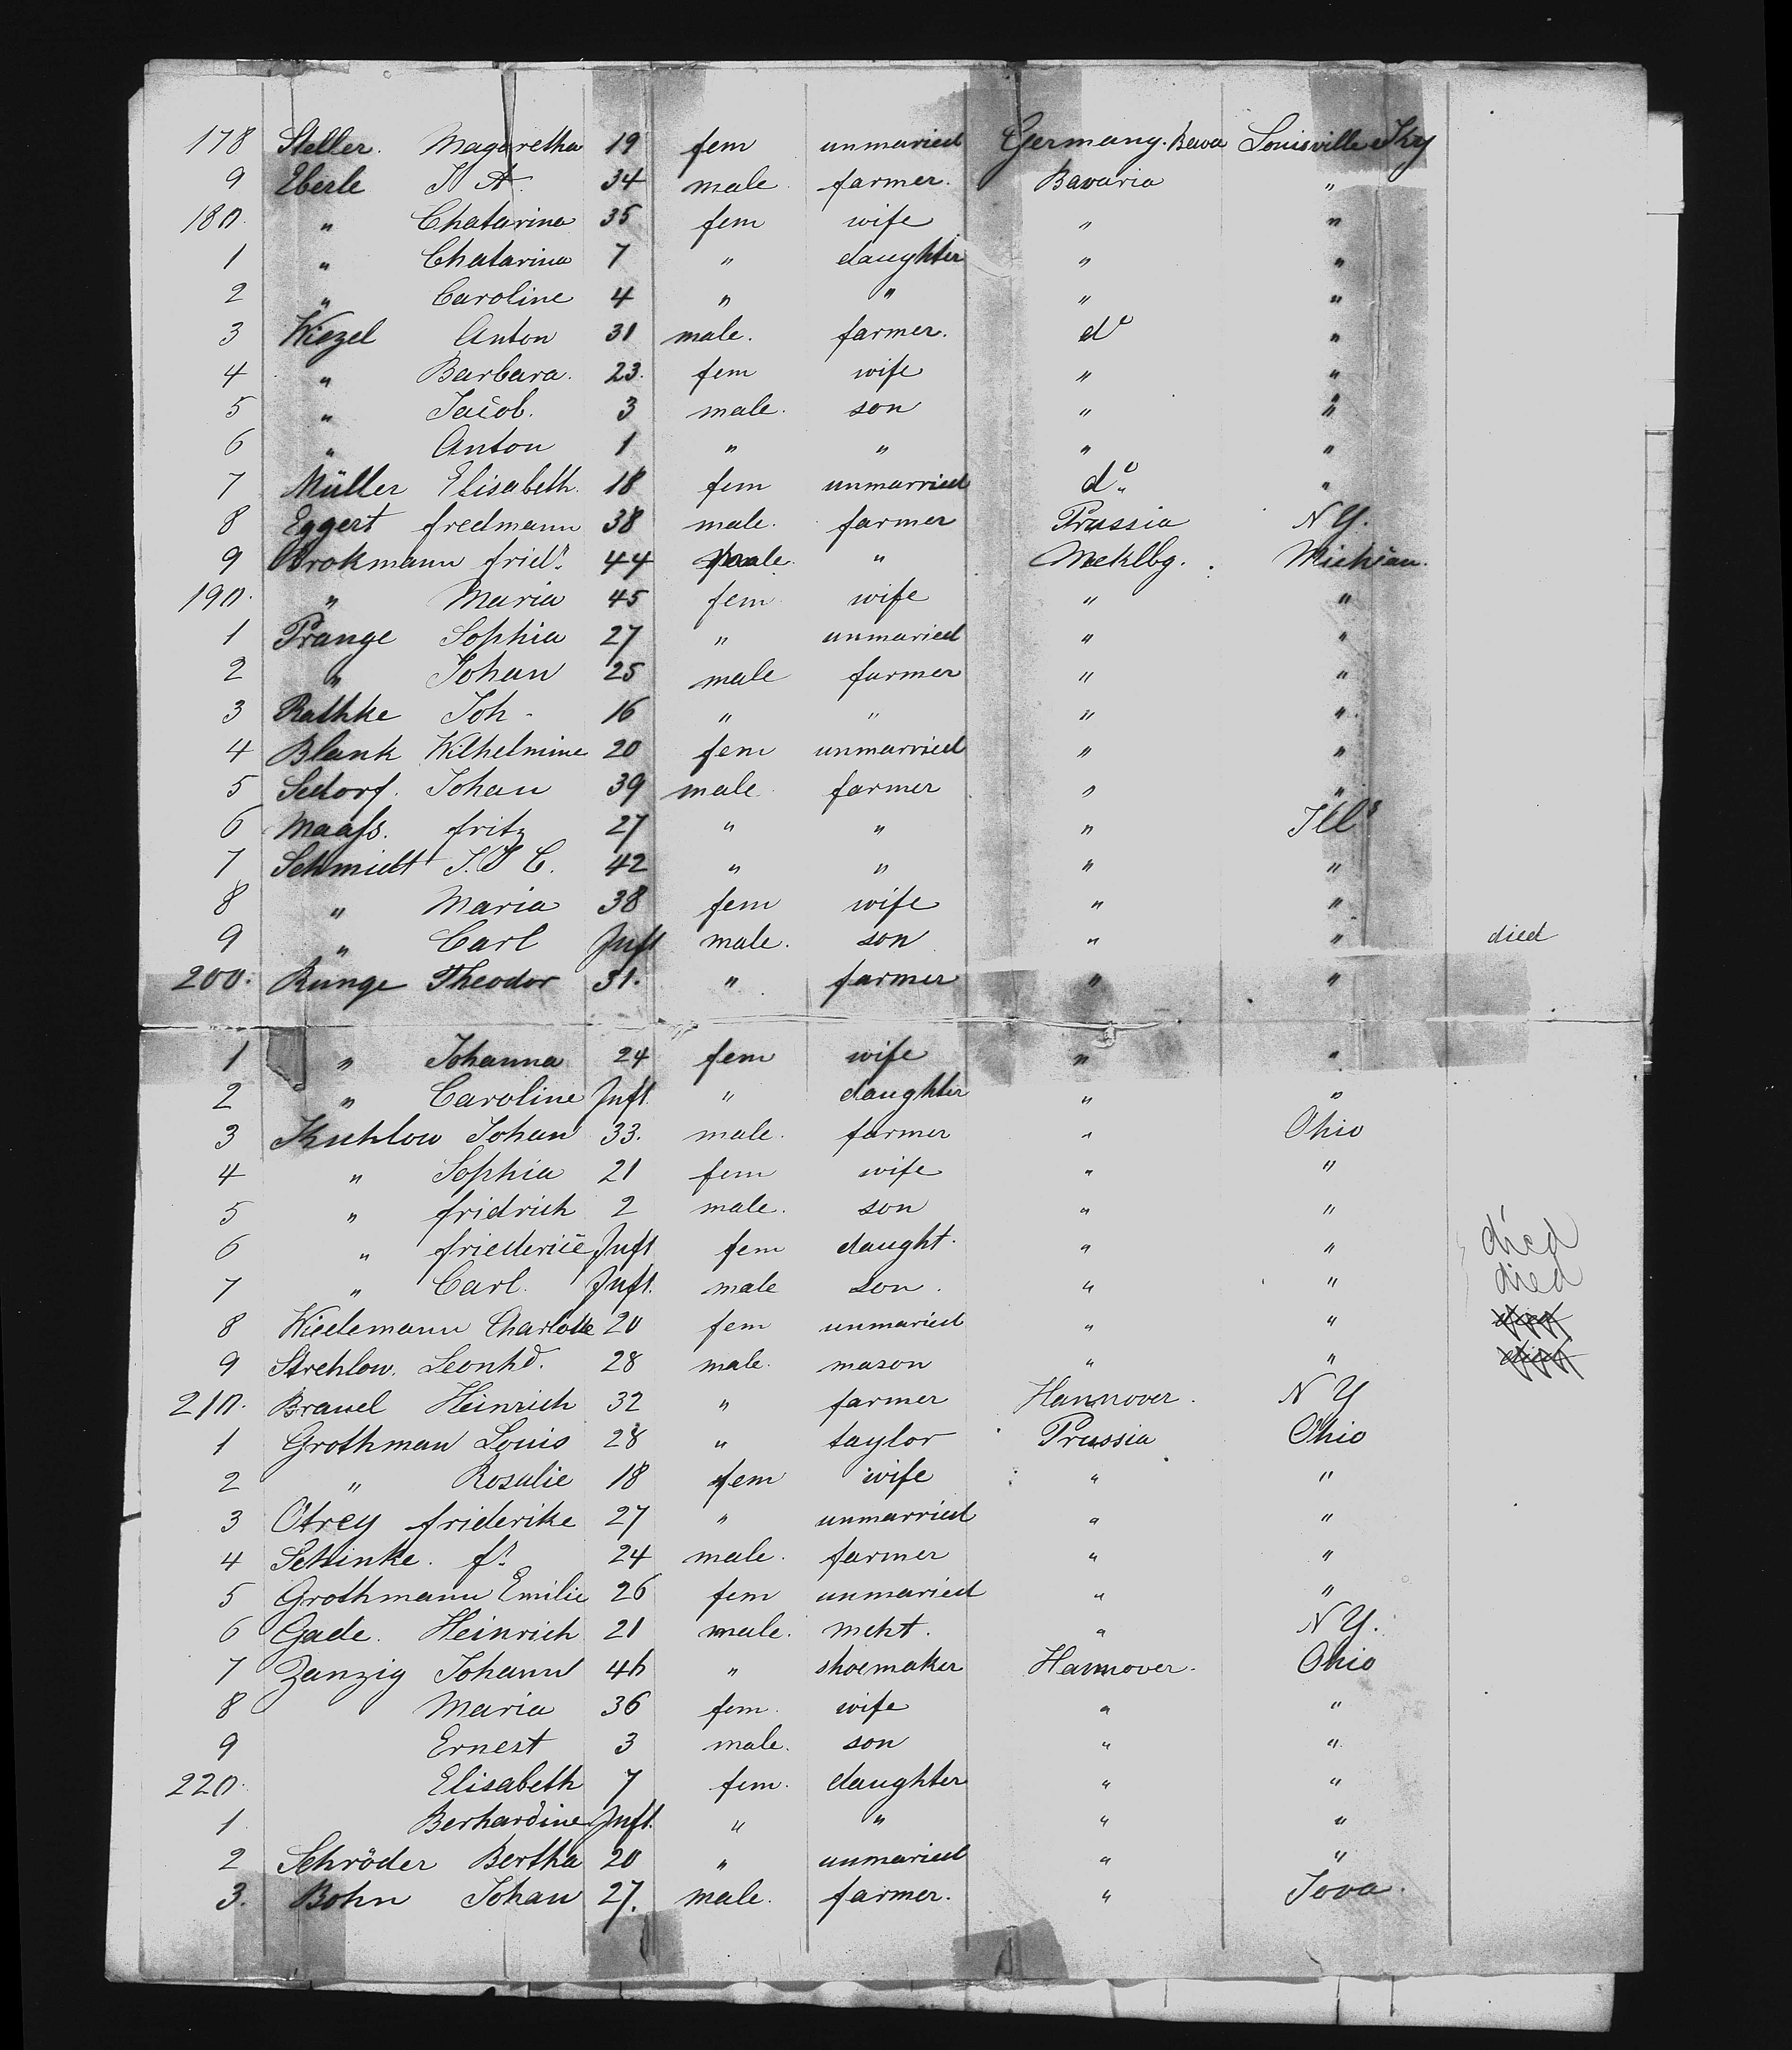 178 Steller. Magaretha 19 fem unmaried Germany. Bava Louisville Ky
9 Eberle J A. 34 male farmer. Bavaria "
180. " Chatarina 35 fem wife " "
1 " Chatarina 7 " daughter " "
2 " Caroline 4 " " " "
3 Wiezel Anton 31 male. farmer. do "
4 " Barbara. 23. fem wife " "
5 " Jacob. 3 male. son " "
6 " Anton 1 " " " "
7 Müller Elisabeth. 18 fem unmarried do "
8 Eggert fredmann 38 male. farmer Prussia N Y.
9 Brokmann fridr. 44 male. " Meklbg. Michian.
190. " Maria 45 fem wife " "
1 Prange Sophia 27 " unmaried " "
2 " Johan 25 male farmer " "
3 Rathke Joh- 16 " " " "
4 Blank Wilhelmine 20 fem unmarried " "
5 Sedorf. Johan 39 male farmer " "
6 Maass. fritz 27 " " " Ills
7 Schmidt J. J C. 42 " " " "
8 " Maria 38 fem wife " "
9 " Carl Inft male. son " " died
200. Runge Theodor 31. " farmer " "
1 " Johanna 24 fem wife " "
2 " Caroline Inft. " daughter " "
3 Kuhlow Johan 33. male. farmer " Ohio
4 " Sophia 21 fem wife " "
5 " fridrich 2 male. son " "
6 " friederice Inft fem daught. " " died
7 " Carl. Inft. male son. " " died
8 Wiedemann Charlotte 20 fem unmaried " " died
9 Strehlow. Leonhd. 28 male. mason " " died
210. Brauel Heinrich 32 " farmer Hannover. N Y
1 Grothman Louis 28 " taylor Prussia Ohio
2 " Rosalie 18 fem wife " "
3 Otrey friderike 27 " unmarried " "
4 Schinke. fr. 24 male. farmer " "
5 Grothmann Emilie 26 fem unmaried " "
6 Gade. Heinrich 21 male. mcht. " N Y.
7 Zanzig Johann 46 " shoemaker Hannover. Ohio
8 Maria 36 fem. wife " "
9 Ernest 3 male. son " "
220. Elisabeth 7 fem. daughter " "
1 Berhardine Inft. " " " "
2 Schröder Bertha 20 " unmaried " "
3. Bohn Johan 27. male. farmer. " Iova.